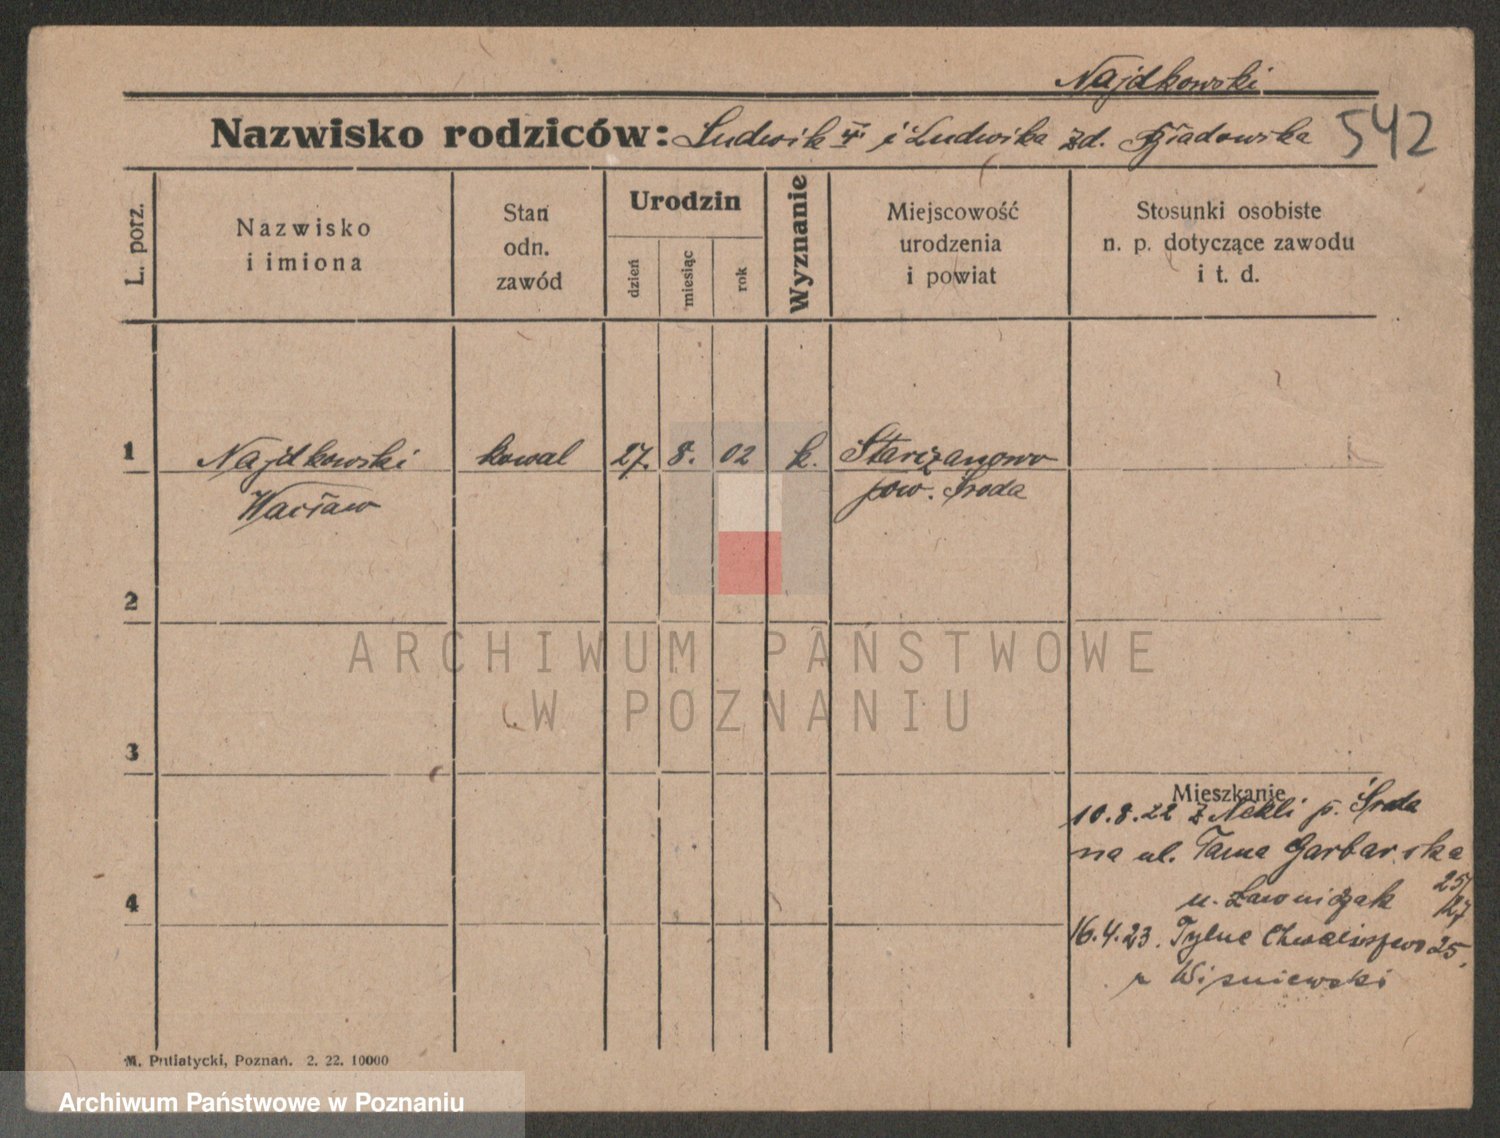 Najdkowski
Nazwisko rodziców: Ludwik i Ludwika zd. 542
L. porz.
Nazwisko
i imiona
Stan
odn.
zawód
Urodzin
dzień
miesiąc
rok
Wyznanie
Miejscowość
urodzenia
i powiat
Stosunki osobiste
n. p. dotyczące zawodu
i t. d.
1 Najdkowski kowal 27. 8. 02 k.
Wacław pow. Środa
2
3
4
ARCHIWUM PAŃSTWOWE
W POZNANIU
Mieszkanie
10.8.22 z Nekli p. Środa
na ul. Tama Garbarska
25/27
u. Ławniczak
16.4.23. Tylne Chwaliszewo 25.
Wiśniewski
M. Putiatycki, Poznań. 2. 22. 10000
Archiwum Państwowe w Poznaniu